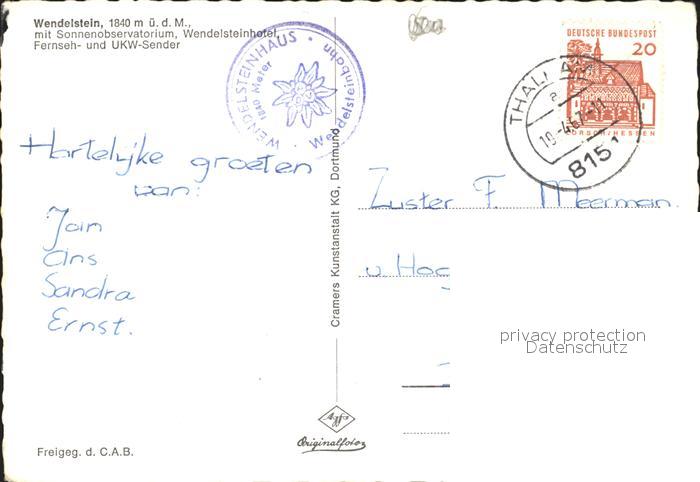 Wendelstein, 1840 m ü. d. M.,
mit Sonnenobservatorium, Wendelsteinhotel,
Fernseh- und UKW-Sender
WENDELSTEINHAUS • Wendelsteinbahn •
1840 Meter
DEUTSCHE BUNDESPOST
20
LORSCH/HESSEN
THALHAM
a
19.-4.67
8151
Hartelijke groeten
van:
Join
Ans
Sandra
Ernst.
Zuster F. Meerman.
v. Hog
Cramers Kunstanstalt KG, Dortmund
privacy protection
Datenschutz
Agfa
Originalfoto
Freigeg. d. C.A.B.